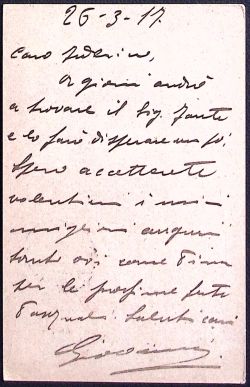 26-3-17.
Caro
A giorni andrò
a trovare il Sig. Zante
e lo farò disperare un pò.
Spero accetterete
volentieri i miei
migliori auguri
tanto voi come Tina
per le prossime feste
Pasquali. Saluti cari
Giovanni